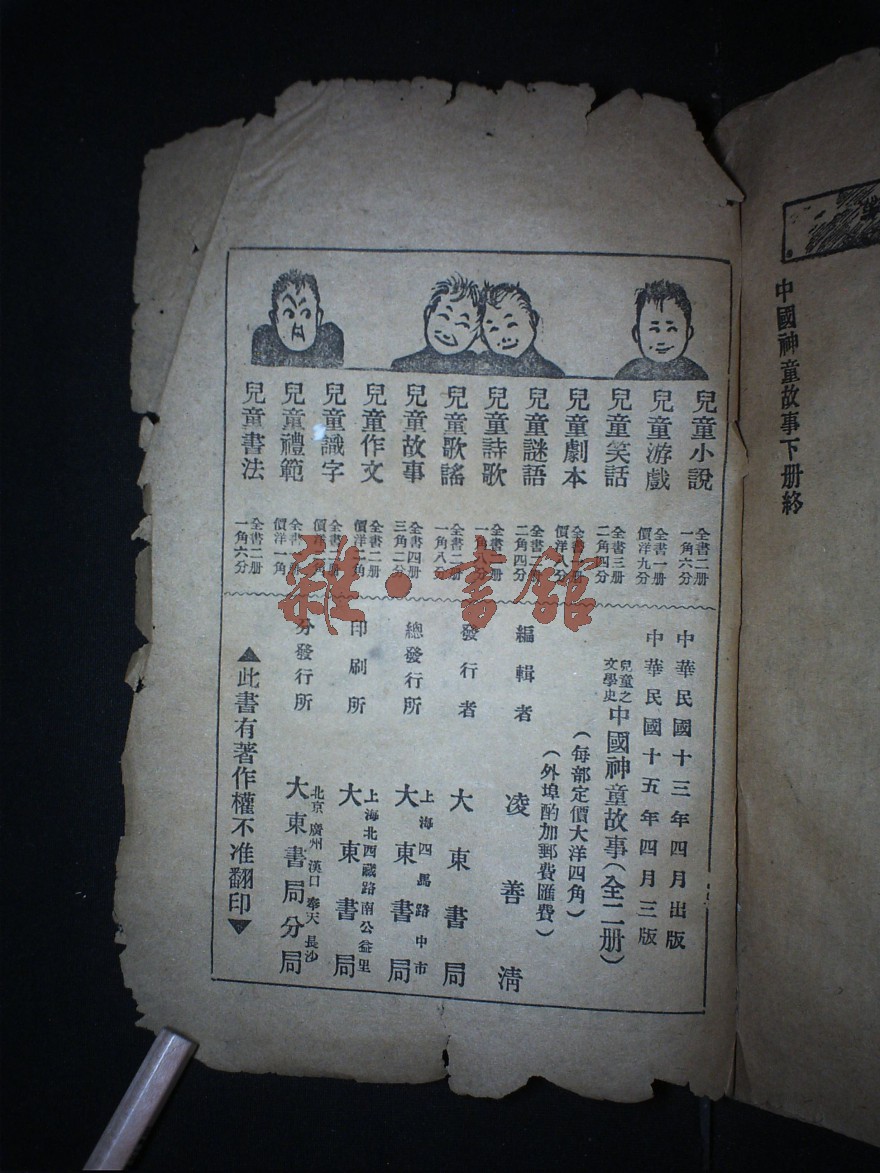 中國神童故事下册終
兒童小說 全書二册 一角六分
兒童游戲 全書一册 價洋九分
兒童笑話 全書三册 二角四分
兒童劇本 全書一册 價洋八分
兒童謎語 全書二册 二角四分
兒童詩歌 全書二册 一角八分
兒童歌謠 全書二册 一角八分
兒童故事 全書四册 三角二分
兒童作文 全書二册 價洋二角
兒童識字 全書二册 價洋
兒童禮範 全書 册 價洋一角
兒童書法 全書二册 一角六分
中華民國十三年四月出版
中華民國十五年四月三版
兒童之文學史 中國神童故事(全二册)
(每部定價大洋四角)
(外埠酌加郵費匯費)
編輯者 凌善清
發行者 大東書局
總發行所 上海四馬路中市 大東書局
印刷所 上海北西藏路南公益里 大東書局
分發行所 北京 廣州 漢口 奉天 長沙 大東書局分局
▲此書有著作權不准翻印▼
雜·書館